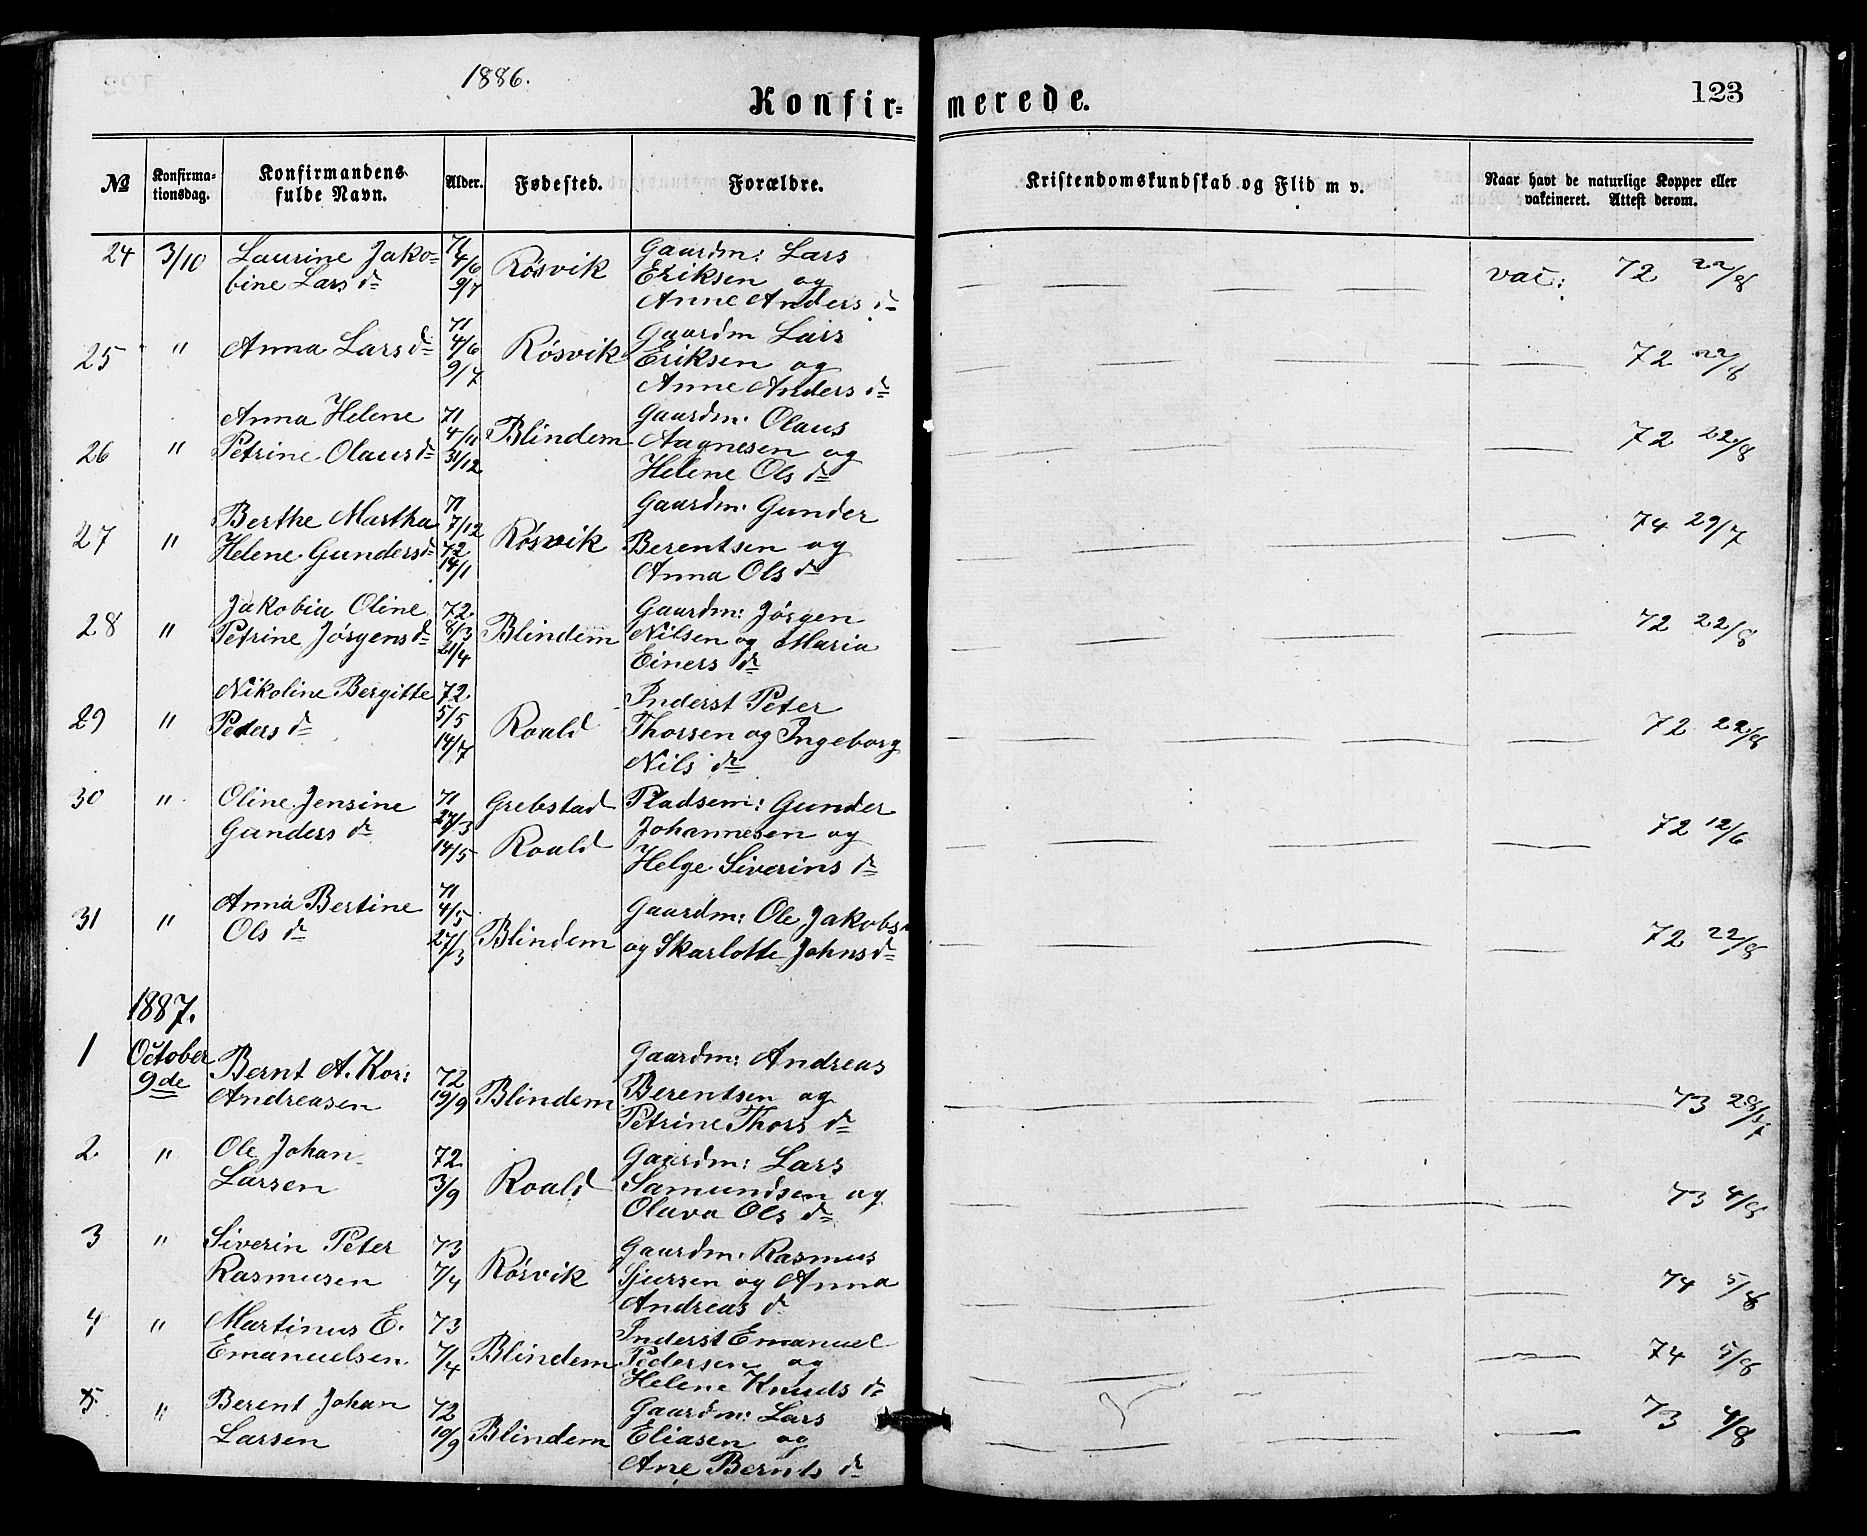 1886.
Konfir= merede.
123
№
Konfirma-
tionsdag.
Konfirmandens
fulde Navn.
Alder.
Fødested.
Forældre.
Kristendomskundskab og Flid m v.
Naar havt de naturlige Kopper eller
vakcineret. Attest derom.
24 3/10 Laurine Jako= 71 Gaardm: Lars
4/6 Røsvik Eriksen og vac: 72 22/8
bine Lars dr 9/7 Anne Anders dr
71 Gaardm Lars
25 " Anna Lars dr 4/6 Røsvik Eriksen og 72 22/8
9/7 Anne Anders dr
Anna Helene 71 Gaardm. Olaus
26 " Petrine Olaus dr 4/11 Blindem Aagnesen og 72 22/8
31/12 Helene Ols dr
Berthe Martha 71 Gaardm. Gunder
7/12
27 " Helene Gunders dr 72 Røsvik Berentsen og 74 29/7
14/1 Anna Ols dr
Jakobia Oline 72. Gaardm: Jørgen
28 " Petrine Jørgens dr 8/3 Blindem Nilsen og Maria 72 22/8
21/4 Einers dr
Nikoline Bergitte 72. Inderst Peter
29 " Peters dr 5/5 Roald Thorsen og Ingeborg 72 22/8
14/7 Nils dr
30 " Oline Jensine 71 Grebstad Pladsem: Gunder
Gunders dr 27/3 Johannesen og 72 12/6
14/5 Roald Helge Siverins dr
Anna Bertine 71 Gaardm: Ole Jakobs
31 " Ols dr 4/5 Blindem og Skarlotte Johns dr 72 22/8
27/3
1887.
1 October Bernt A. Kor: 72 Gaardm: Andreas
9de Andreasen 19/9 Blindem Berentsen og 73 28/7
Petrine Thors dr
2. " Ole Johan 72. Gaardm: Lars
Larsen 3/9 Roald Samundsen og 73 4/8
Olava Ols dr
3 " Siverin Peter 73 Gaardm. Rasmus
Rasmusen 7/4 Røsvik Sjursen og Anna 74 5/8
Andreas dr
4 " Martinus E. 73 Inderst Emanuel
Emanuelsen. 7/4 Blindem Pedersen og 74 5/8
Helene Knuds dr
5. " Berent Johan 72 Gaardm: Lars
Larsen 10/9 Blindem Eliasen og 73 4/8
Ane Bernts dr